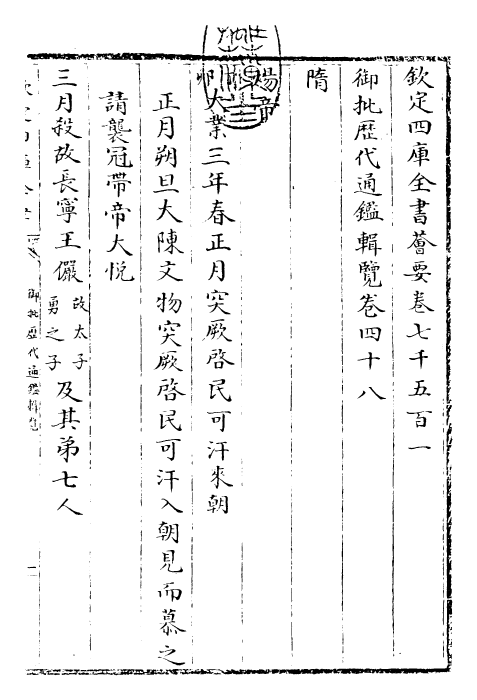 欽定四庫全書薈要卷七千五百一
御批歷代通鑑輯覽卷四十八
隋
煬帝
大業三年春正月突厥啓民可汗來朝
正月朔旦大陳文物突厥啓民可汗入朝見而慕之
請襲冠帶帝大悅
三月殺故長寧王儼故太子勇之子及其弟七人
御批歷代通鑑輯覽